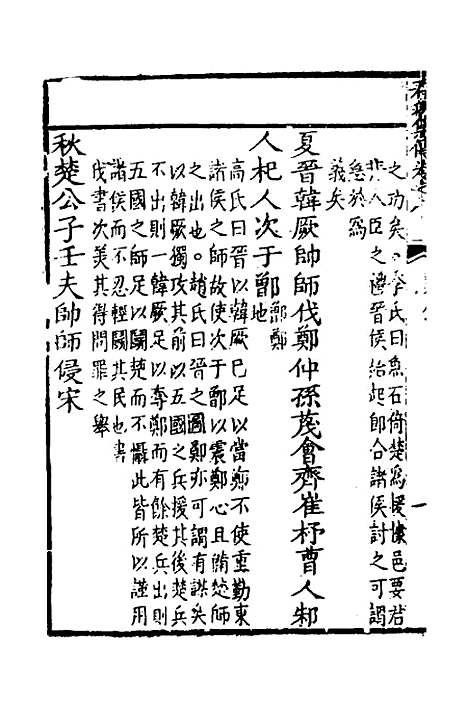 之功矣。李氏曰魚石倚楚爲援據邑要君
人臣之 晉侯始起即合諸侯討之可謂
急於爲
義矣
夏晉韓厥帥師伐鄭仲孫蔑會齊崔杼曹人邾
人杞人次于鄫 鄫鄭地
高氏曰晉以韓厥已足以當鄭不使重勤東
諸侯之師故使次于鄫以震鄭心且 楚師
之出也。趙氏曰晉之圖鄭亦可謂有謀矣
以韓厥獨攻其前以五國之兵援其後楚兵
不出則一韓厥足以奪鄭而有餘楚兵出則
五國之師足以鬬楚而不懾此皆所以謹用
諸侯而不忍輕鬬其民也書
伐書次美其得問罪之舉
秋楚公子壬夫帥師侵宋